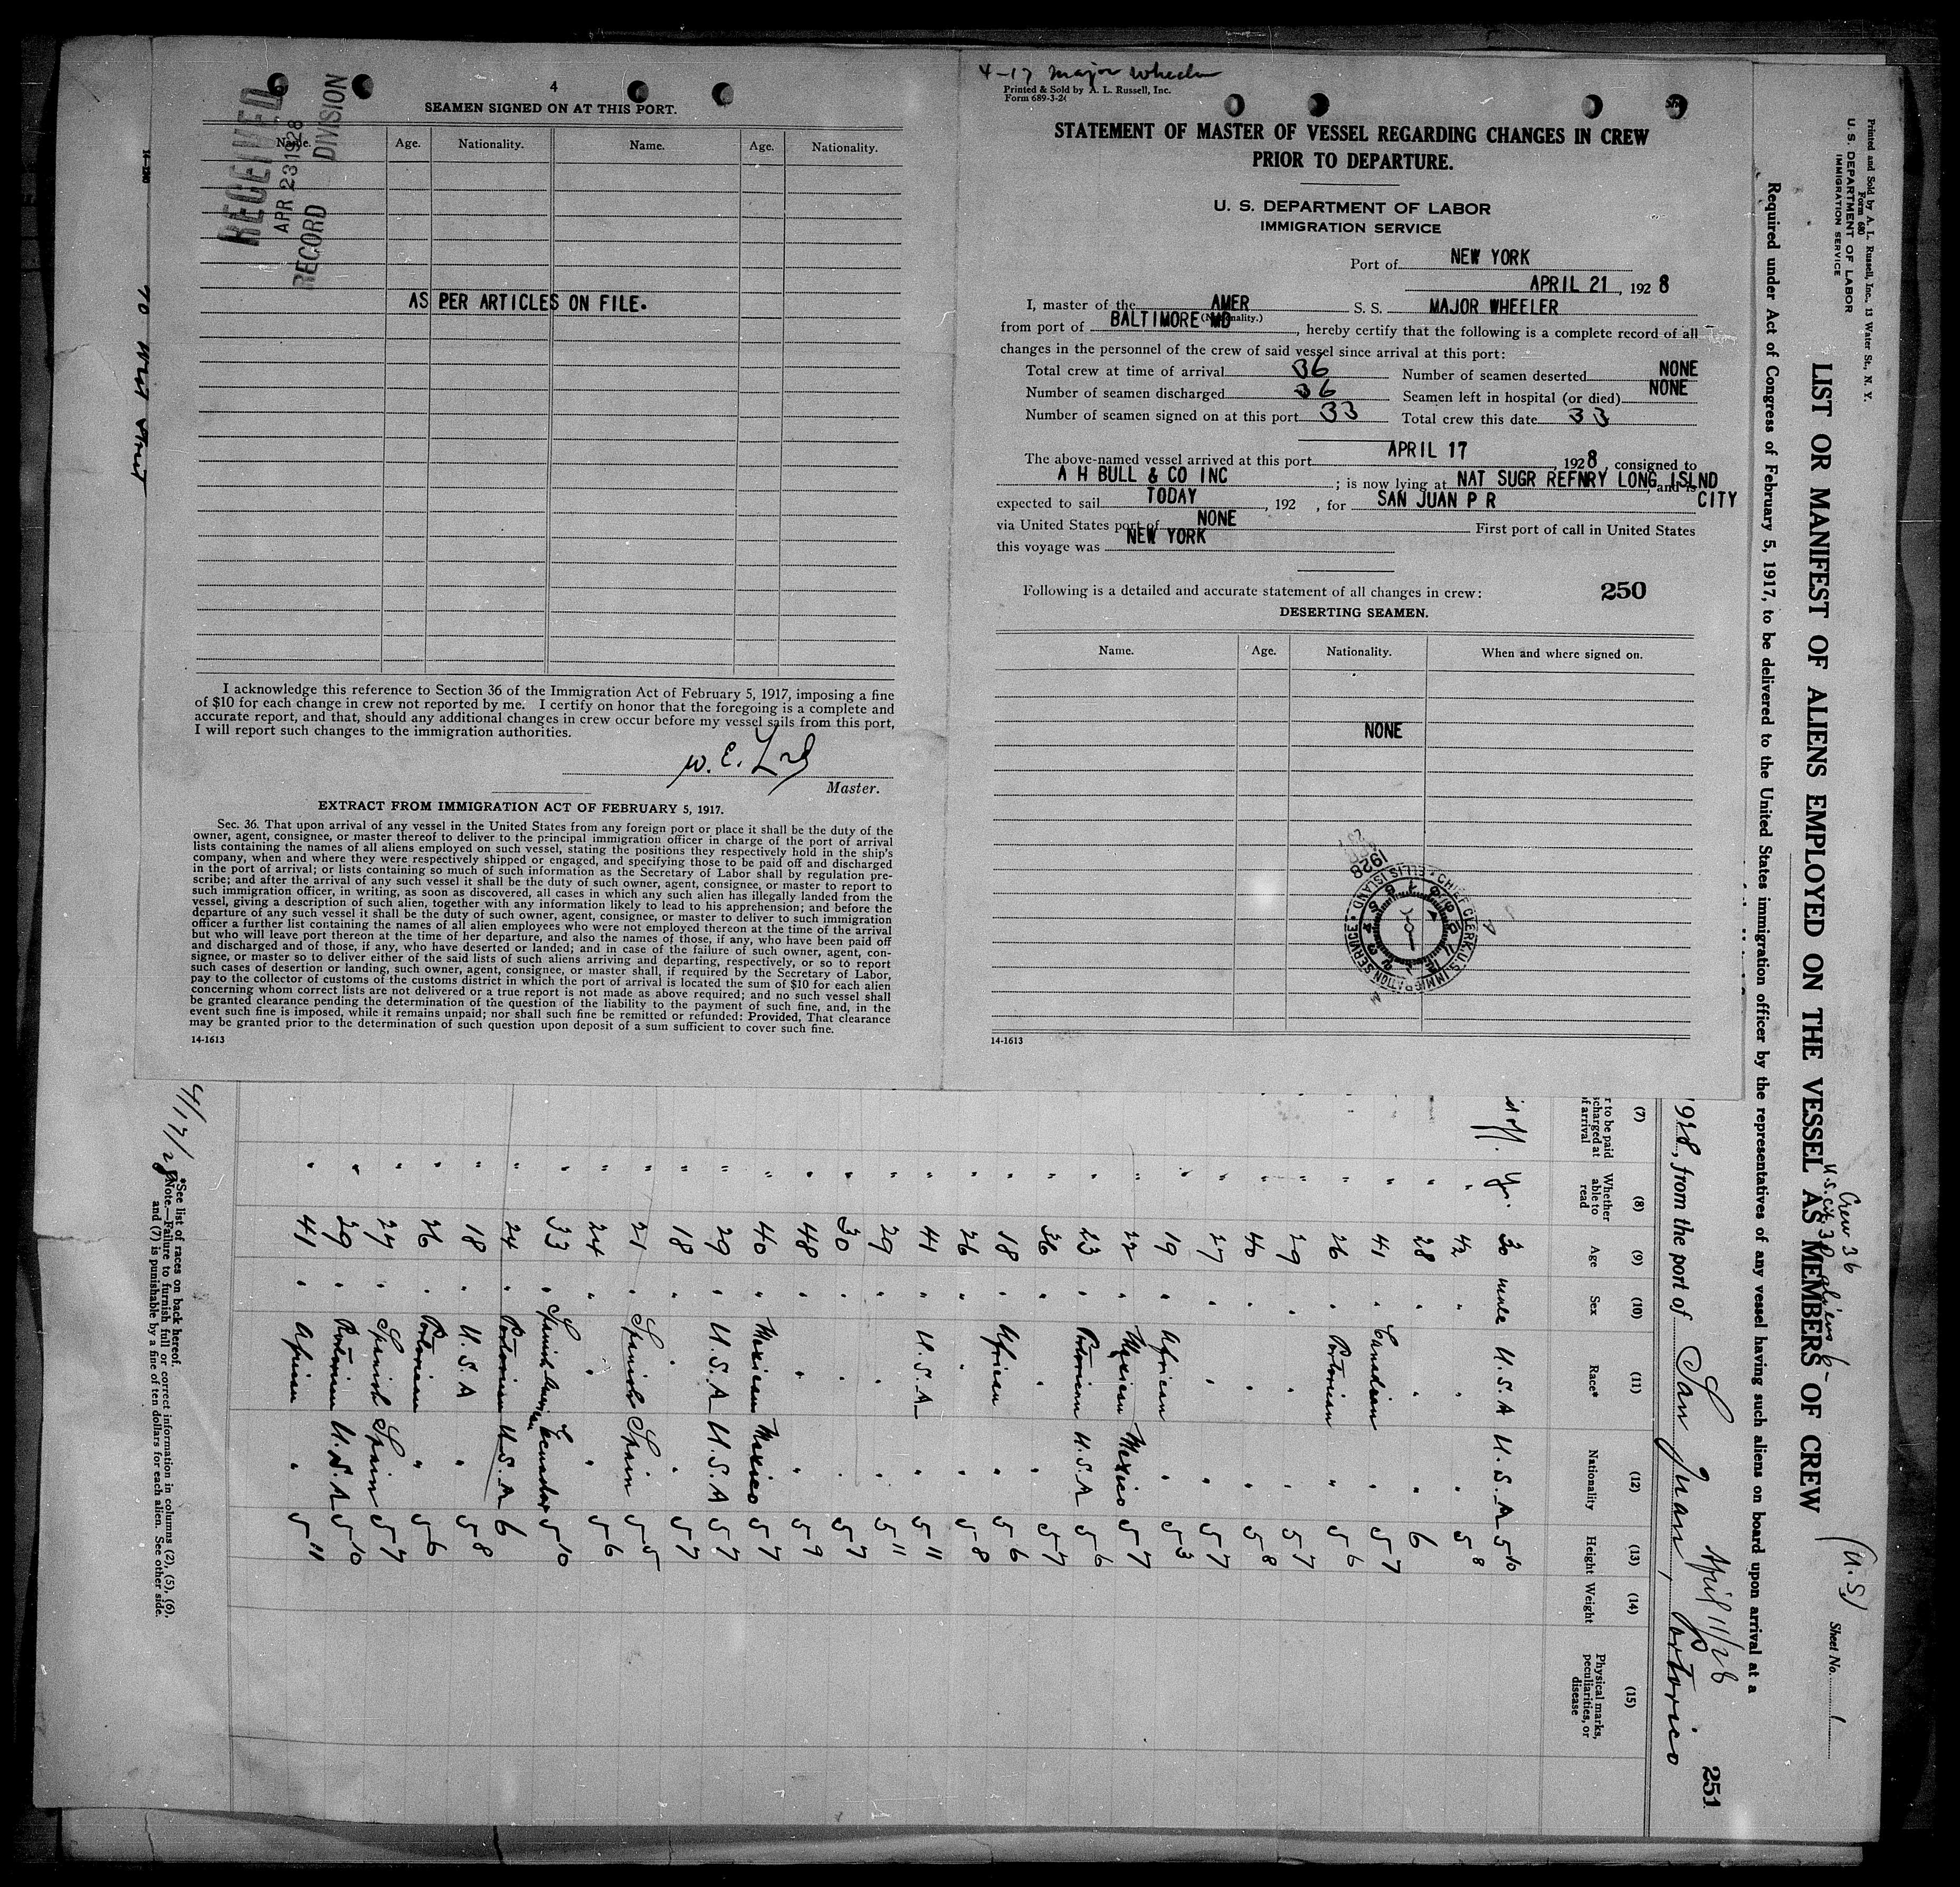 4
SEAMEN SIGNED ON AT THIS PORT.
RECEIVED
APR 23 1928
RECORD DIVISION
Name. Age. Nationality. Name. Age. Nationality.
AS PER ARTICLES ON FILE.
14-1240
70 West Street
I acknowledge this reference to Section 36 of the Immigration Act of February 5, 1917, imposing a fine
of $10 for each change in crew not reported by me. I certify on honor that the foregoing is a complete and
accurate report, and that, should any additional changes in crew occur before my vessel sails from this port,
I will report such changes to the immigration authorities.
W. E.
Master.
EXTRACT FROM IMMIGRATION ACT OF FEBRUARY 5, 1917.
Sec. 36. That upon arrival of any vessel in the United States from any foreign port or place it shall be the duty of the
owner, agent, consignee, or master thereof to deliver to the principal immigration officer in charge of the port of arrival
lists containing the names of all aliens employed on such vessel, stating the positions they respectively hold in the ship's
company, when and where they were respectively shipped or engaged, and specifying those to be paid off and discharged
in the port of arrival; or lists containing so much of such information as the Secretary of Labor shall by regulation pre-
scribe; and after the arrival of any such vessel it shall be the duty of such owner, agent, consignee, or master to report to
such immigration officer, in writing, as soon as discovered, all cases in which any such alien has illegally landed from the
vessel, giving a description of such alien, together with any information likely to lead to his apprehension; and before the
departure of any such vessel it shall be the duty of such owner, agent, consignee, or master to deliver to such immigration
officer a further list containing the names of all alien employees who were not employed thereon at the time of the arrival
but who will leave port thereon at the time of her departure, and also the names of those, if any, who have been paid off
and discharged and of those, if any, who have deserted or landed; and in case of the failure of such owner, agent, con-
signee, or master so to deliver either of the said lists of such aliens arriving and departing, respectively, or so to report
such cases of desertion or landing, such owner, agent, consignee, or master shall, if required by the Secretary of Labor,
pay to the collector of customs of the customs district in which the port of arrival is located the sum of $10 for each alien
concerning whom correct lists are not delivered or a true report is not made as above required; and no such vessel shall
be granted clearance pending the determination of the question of the liability to the payment of such fine, and, in the
event such fine is imposed, while it remains unpaid; nor shall such fine be remitted or refunded: Provided, That clearance
may be granted prior to the determination of such question upon deposit of a sum sufficient to cover such fine.
14-1613
4-17 Major Wheeler
Printed & Sold by A. L. Russell, Inc.
Form 689-3-24
STATEMENT OF MASTER OF VESSEL REGARDING CHANGES IN CREW
PRIOR TO DEPARTURE.
U. S. DEPARTMENT OF LABOR
IMMIGRATION SERVICE
Port of NEW YORK
APRIL 21, 1928
I, master of the AMER S. S. MAJOR WHEELER
(Nationality.)
from port of BALTIMORE MD, hereby certify that the following is a complete record of all
changes in the personnel of the crew of said vessel since arrival at this port:
Total crew at time of arrival 36 Number of seamen deserted NONE
Number of seamen discharged 36 Seamen left in hospital (or died) NONE
Number of seamen signed on at this port 33 Total crew this date 33
The above-named vessel arrived at this port APRIL 17, 1928, consigned to
A H BULL & CO INC; is now lying at NAT SUGR REFNRY LONG ISLND CITY, and is
expected to sail TODAY, 192 , for SAN JUAN P R
via United States port of NONE First port of call in United States
this voyage was NEW YORK
Following is a detailed and accurate statement of all changes in crew: 250
DESERTING SEAMEN.
Name. Age. Nationality. When and where signed on.
NONE
1928
CHIEF CLERK U.S. IMMIGRATION SERVICE • ELLIS ISLAND
14-1613
Printed and Sold by A. L. Russell, Inc., 13 Water St., N. Y.
Form 680
U. S. DEPARTMENT OF LABOR
IMMIGRATION SERVICE
LIST OR MANIFEST OF ALIENS EMPLOYED ON THE VESSEL AS MEMBERS OF CREW
Crew 36
(U.S.)
Sheet No. 1
Required under Act of Congress of February 5, 1917, to be delivered to the United States immigration officer by the representatives of any vessel having such aliens on board upon arrival at a
April 11/28
251
1928, from the port of San Juan, Portorico
(7) (8) (9) (10) (11) (12) (13) (14) (15)
r to be paid
scharged at
of arrival
Whether able to read Age Sex Race* Nationality Height Weight Physical marks, peculiarities, or disease
Yes. 30 male U.S.A U.S.A 5 10
" 42 " " " 5 8
" 28 " " " 6
" 41 " Canadian " 5 7
" 26 " Portorican " 5 6
" 29 " " " 5 7
" 40 " " " 5 8
" 27 " " " 5 7
" 19 " African " 5 3
" 22 " Mexican Mexico 5 7
" 23 " Portorican U.S.A 5 6
" 36 " " " 5 7
" 18 " African " 5 6
" 26 " " " 5 8
" 41 " U.S.A " 5 11
" 29 " " " 5 11
" 30 " " " 5 7
" 48 " " " 5 9
" 40 " Mexican Mexico 5 7
" 29 " U.S.A U.S.A 5 7
" 18 " " " 5 7
" 21 " Spanish Spain 5 5
" 24 " " " 5 6
" 33 " Spanish American Ecuador 5 10
" 24 " Portorican U.S.A 6
" 18 " U.S.A " 5 8
" 26 " Portorican " 5 6
" 27 " Spanish Spain 5 7
" 29 " Portorican U.S.A 5 10
" 41 " African " 5 11
4/17/28
*See list of races on back hereof.
Note.—Failure to furnish full or correct information in columns (2), (5), (6),
and (7) is punishable by a fine of ten dollars for each alien. See other side.